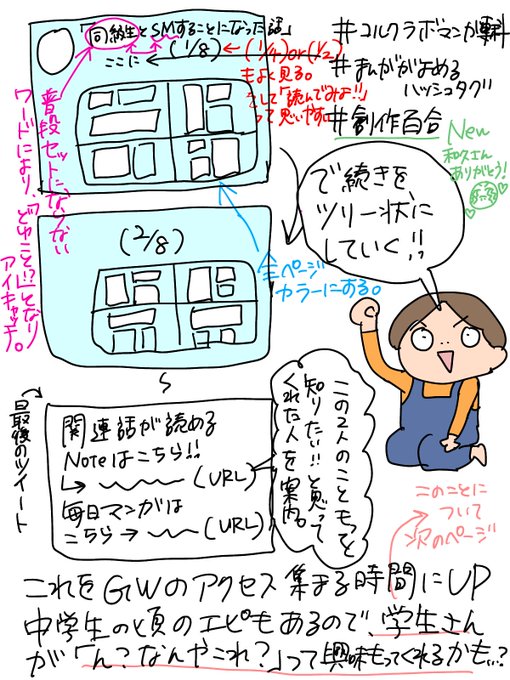 「同級生とSMすることになった話」
ここに (1/8) ← (1/4)or(1/2)
もよく見る。
そして「読んでみよ!!」
って思いやすい
#コルクラボマンガ専科
#まんががよめる
ハッシュタグ
#創作百合
New
和久さん
ありがとう!
普段セットにならない
ワードにより、「どゆこと!?」となり
アイキャッチ。
で続きを、
ツリー状に
していく!!
(2/8)
全ページ
カラーにする。
最後のツイート
関連話が読める
Noteはこちら!!
(URL)
毎日マンガは
こちら→ (URL)
この2人のこともっと
知りたい!!と思って
くれた人を案内。
このことに
ついて
次のページ
これをGWのアクセス集まる時間にUP
中学生の頃のエピもあるので、学生さん
が「ん?なんやこれ?」って興味もってくれるかも…?